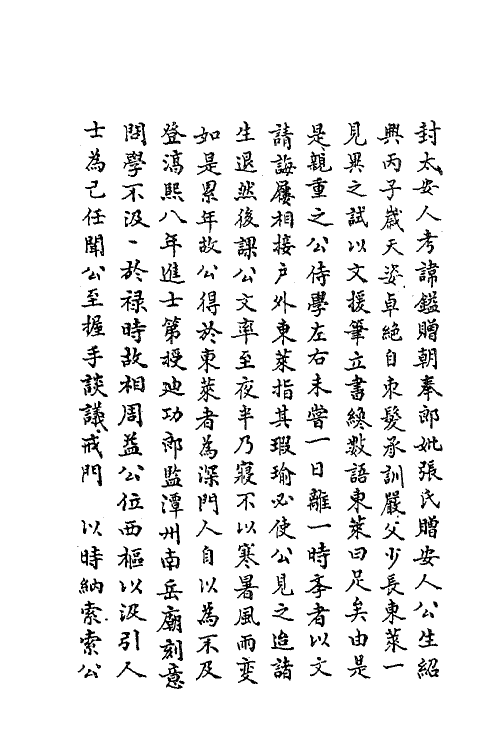 封太安人考諱鎰贈朝奉郎妣張氏贈安人公生紹
興丙子歲天姿卓絶自束髮承訓嚴父少長東萊一
見異之試以文援筆立書纔數語東萊曰足矣由是
是親重之公侍學左右未嘗一日離一時學者以文
請誨屨相接户外東萊指其瑕瑜必使公見之迨諸
生退然後課公文率至夜半乃寢不以寒暑風雨變
如是累年故公得於東萊者為深門人自以為不及
登淳熙八年進士第授廸功郎監潭州南岳廟刻意
問學不汲汲於禄時故相周益公位西樞以汲引人
士為己任聞公至握手談議戒門 以時納索索公